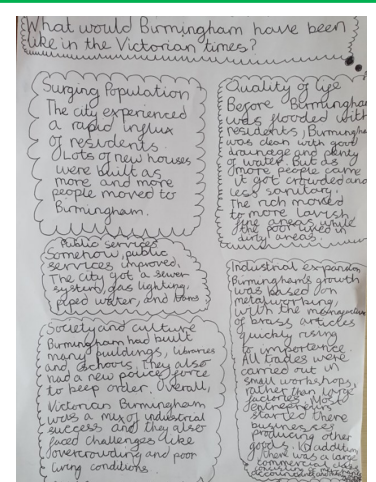 What would Birmingham have been
like in the Victorian times?
Surging Population
The city experienced
a rapid influx
of residents.
Lots of new houses
were built as
more and more
people moved to
Birmingham.
Public services
Somehow, public
services improved.
The city got a sewer
system, gas lighting,
piped water, and
Society and culture
Birmingham had built
many buildings, libraries
and schools. They also
had a new police force
to keep order. Overall,
Victorian Birmingham
was a mix of industrial
success and they also
faced challenges like
overcrowding and poor
living conditions.
Quality of life
Before Birmingham
was flooded with
residents, Birmingham
was clean with good
drainage and plenty
of water. But as
more people came
it got crowded and
less sanitary.
The rich moved
to more lavish
areas while
the poor lived in
dirty areas.
Industrial expansion
Birmingham's growth
was based on
metalworking,
with the
of brass articles
quickly rising
to importance.
All trades were
carried out in
small workshops,
rather than large
factories. Most
entrepreneurs
started there
businesses
producing other
goods. In addition
there was a large
commercial class